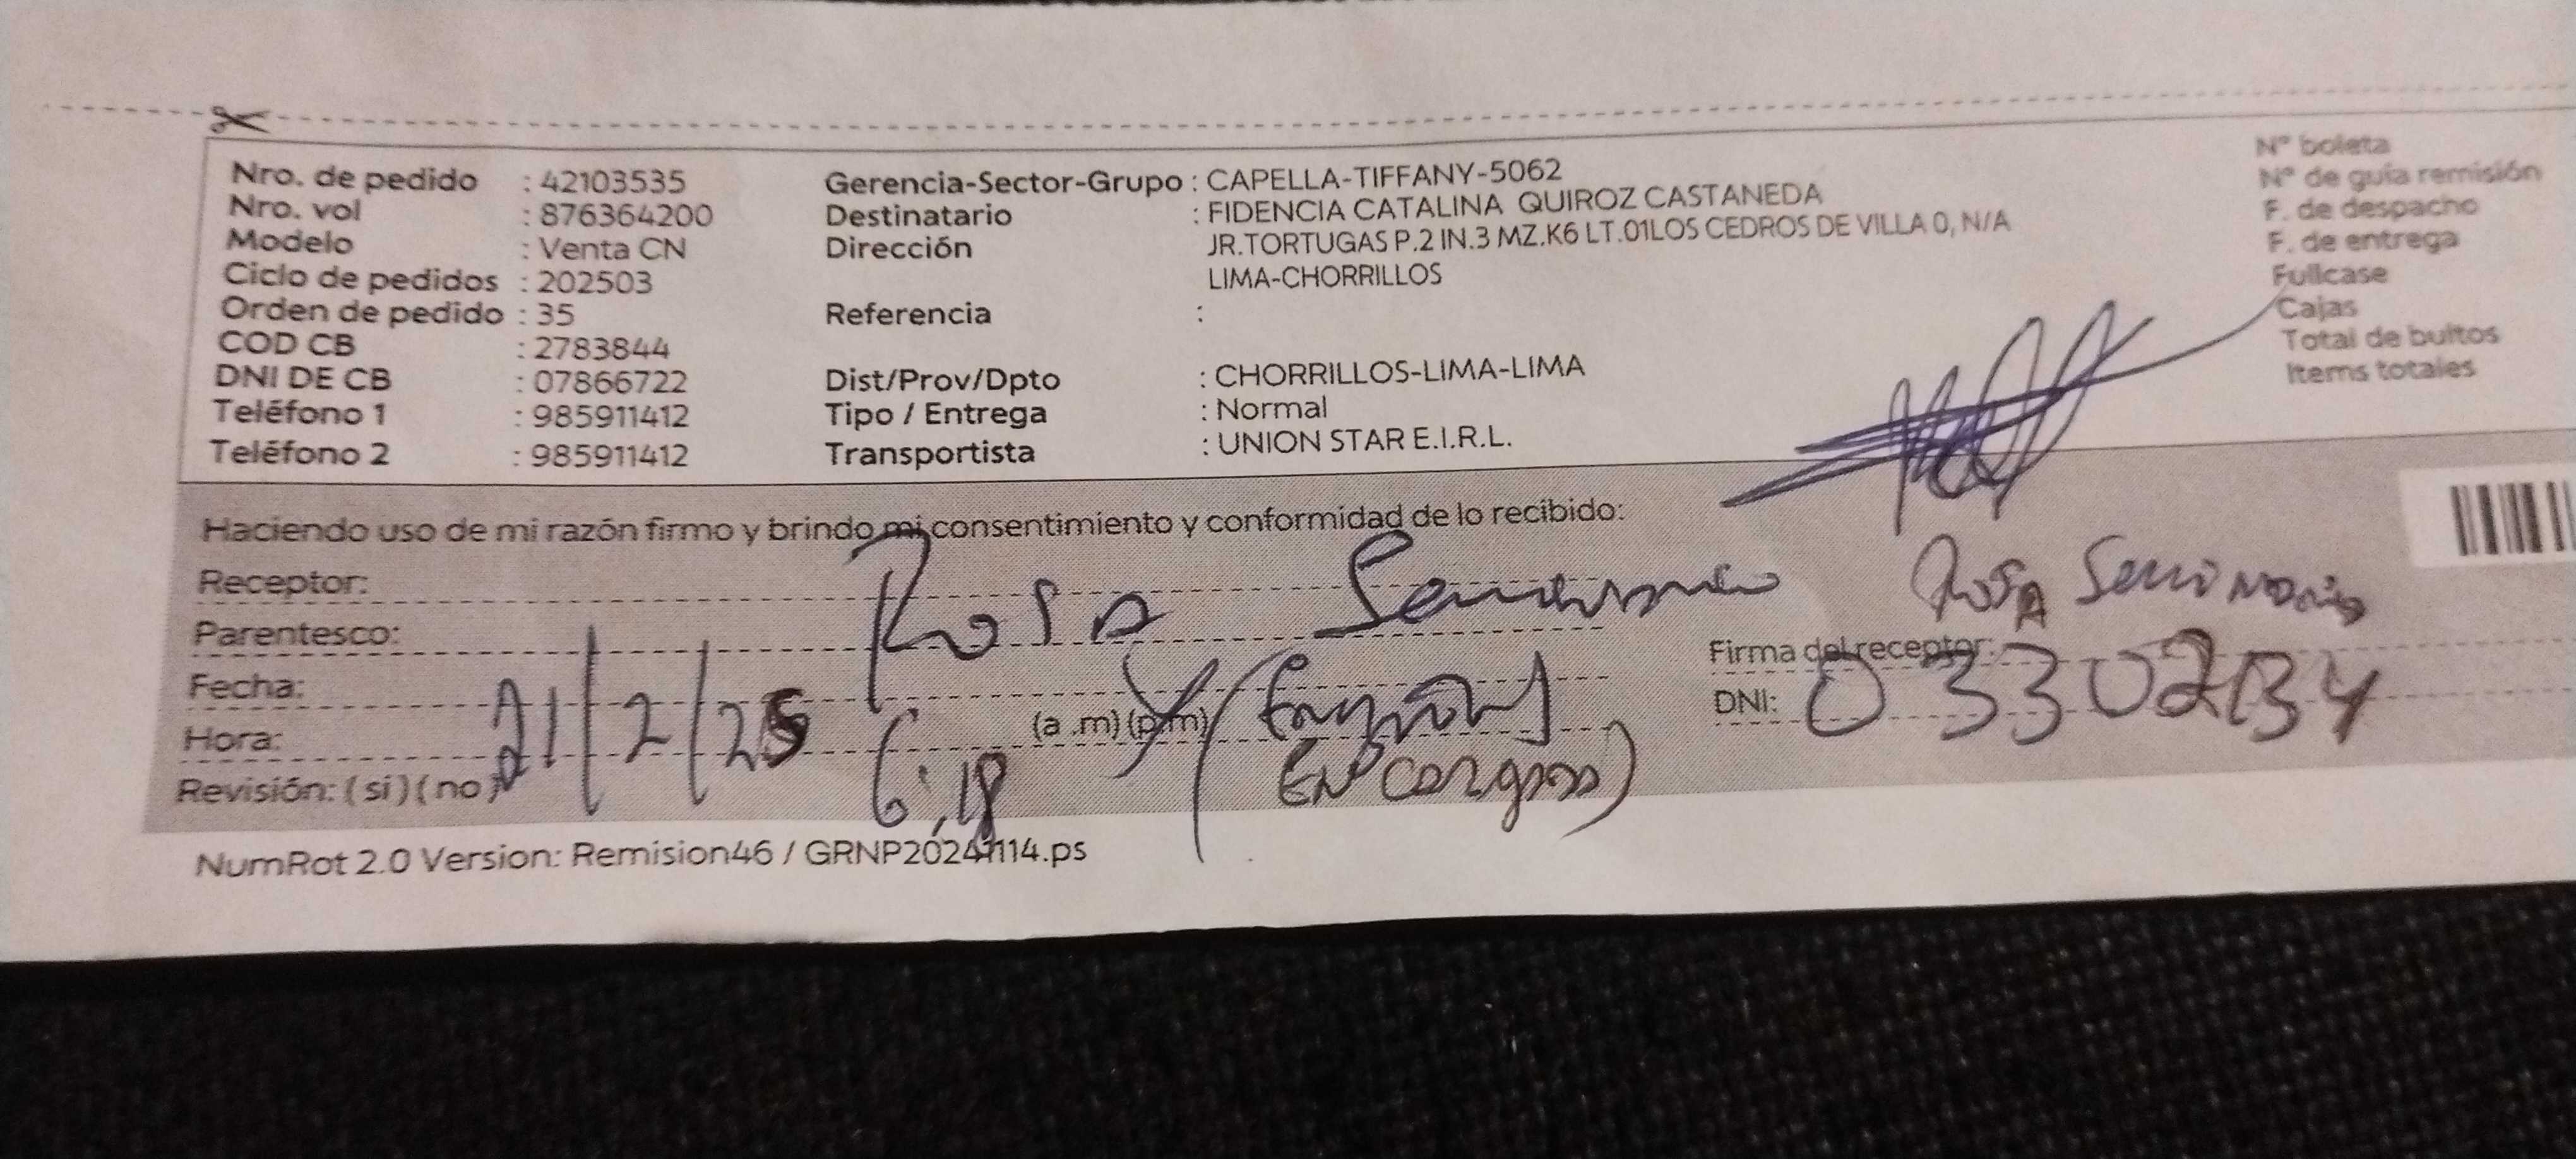 Nro. de pedido : 42103535
Nro. vol : 876364200
Modelo : Venta CN
Ciclo de pedidos : 202503
Orden de pedido : 35
COD CB : 2783844
DNI DE CB : 07866722
Teléfono 1 : 985911412
Teléfono 2 : 985911412
Gerencia-Sector-Grupo : CAPELLA-TIFFANY-5062
Destinatario : FIDENCIA CATALINA QUIROZ CASTANEDA
Dirección JR.TORTUGAS P.2 IN.3 MZ.K6 LT.01LOS CEDROS DE VILLA 0, N/A
LIMA-CHORRILLOS
Referencia :
Dist/Prov/Dpto : CHORRILLOS-LIMA-LIMA
Tipo / Entrega : Normal
Transportista : UNION STAR E.I.R.L.
N° boleta
N° de guía remisión
F. de despacho
F. de entrega
Fullcase
Cajas
Total de bultos
Items totales
Haciendo uso de mi razón firmo y brindo mi consentimiento y conformidad de lo recibido:
Receptor: Rosa
Parentesco:
Fecha: 21/2/25
Hora: 6:18 (a .m) (p.m)
Revisión: (si) (no)
Rosa
Firma del receptor:
DNI:
NumRot 2.0 Version: Remision46 / GRNP20241114.ps